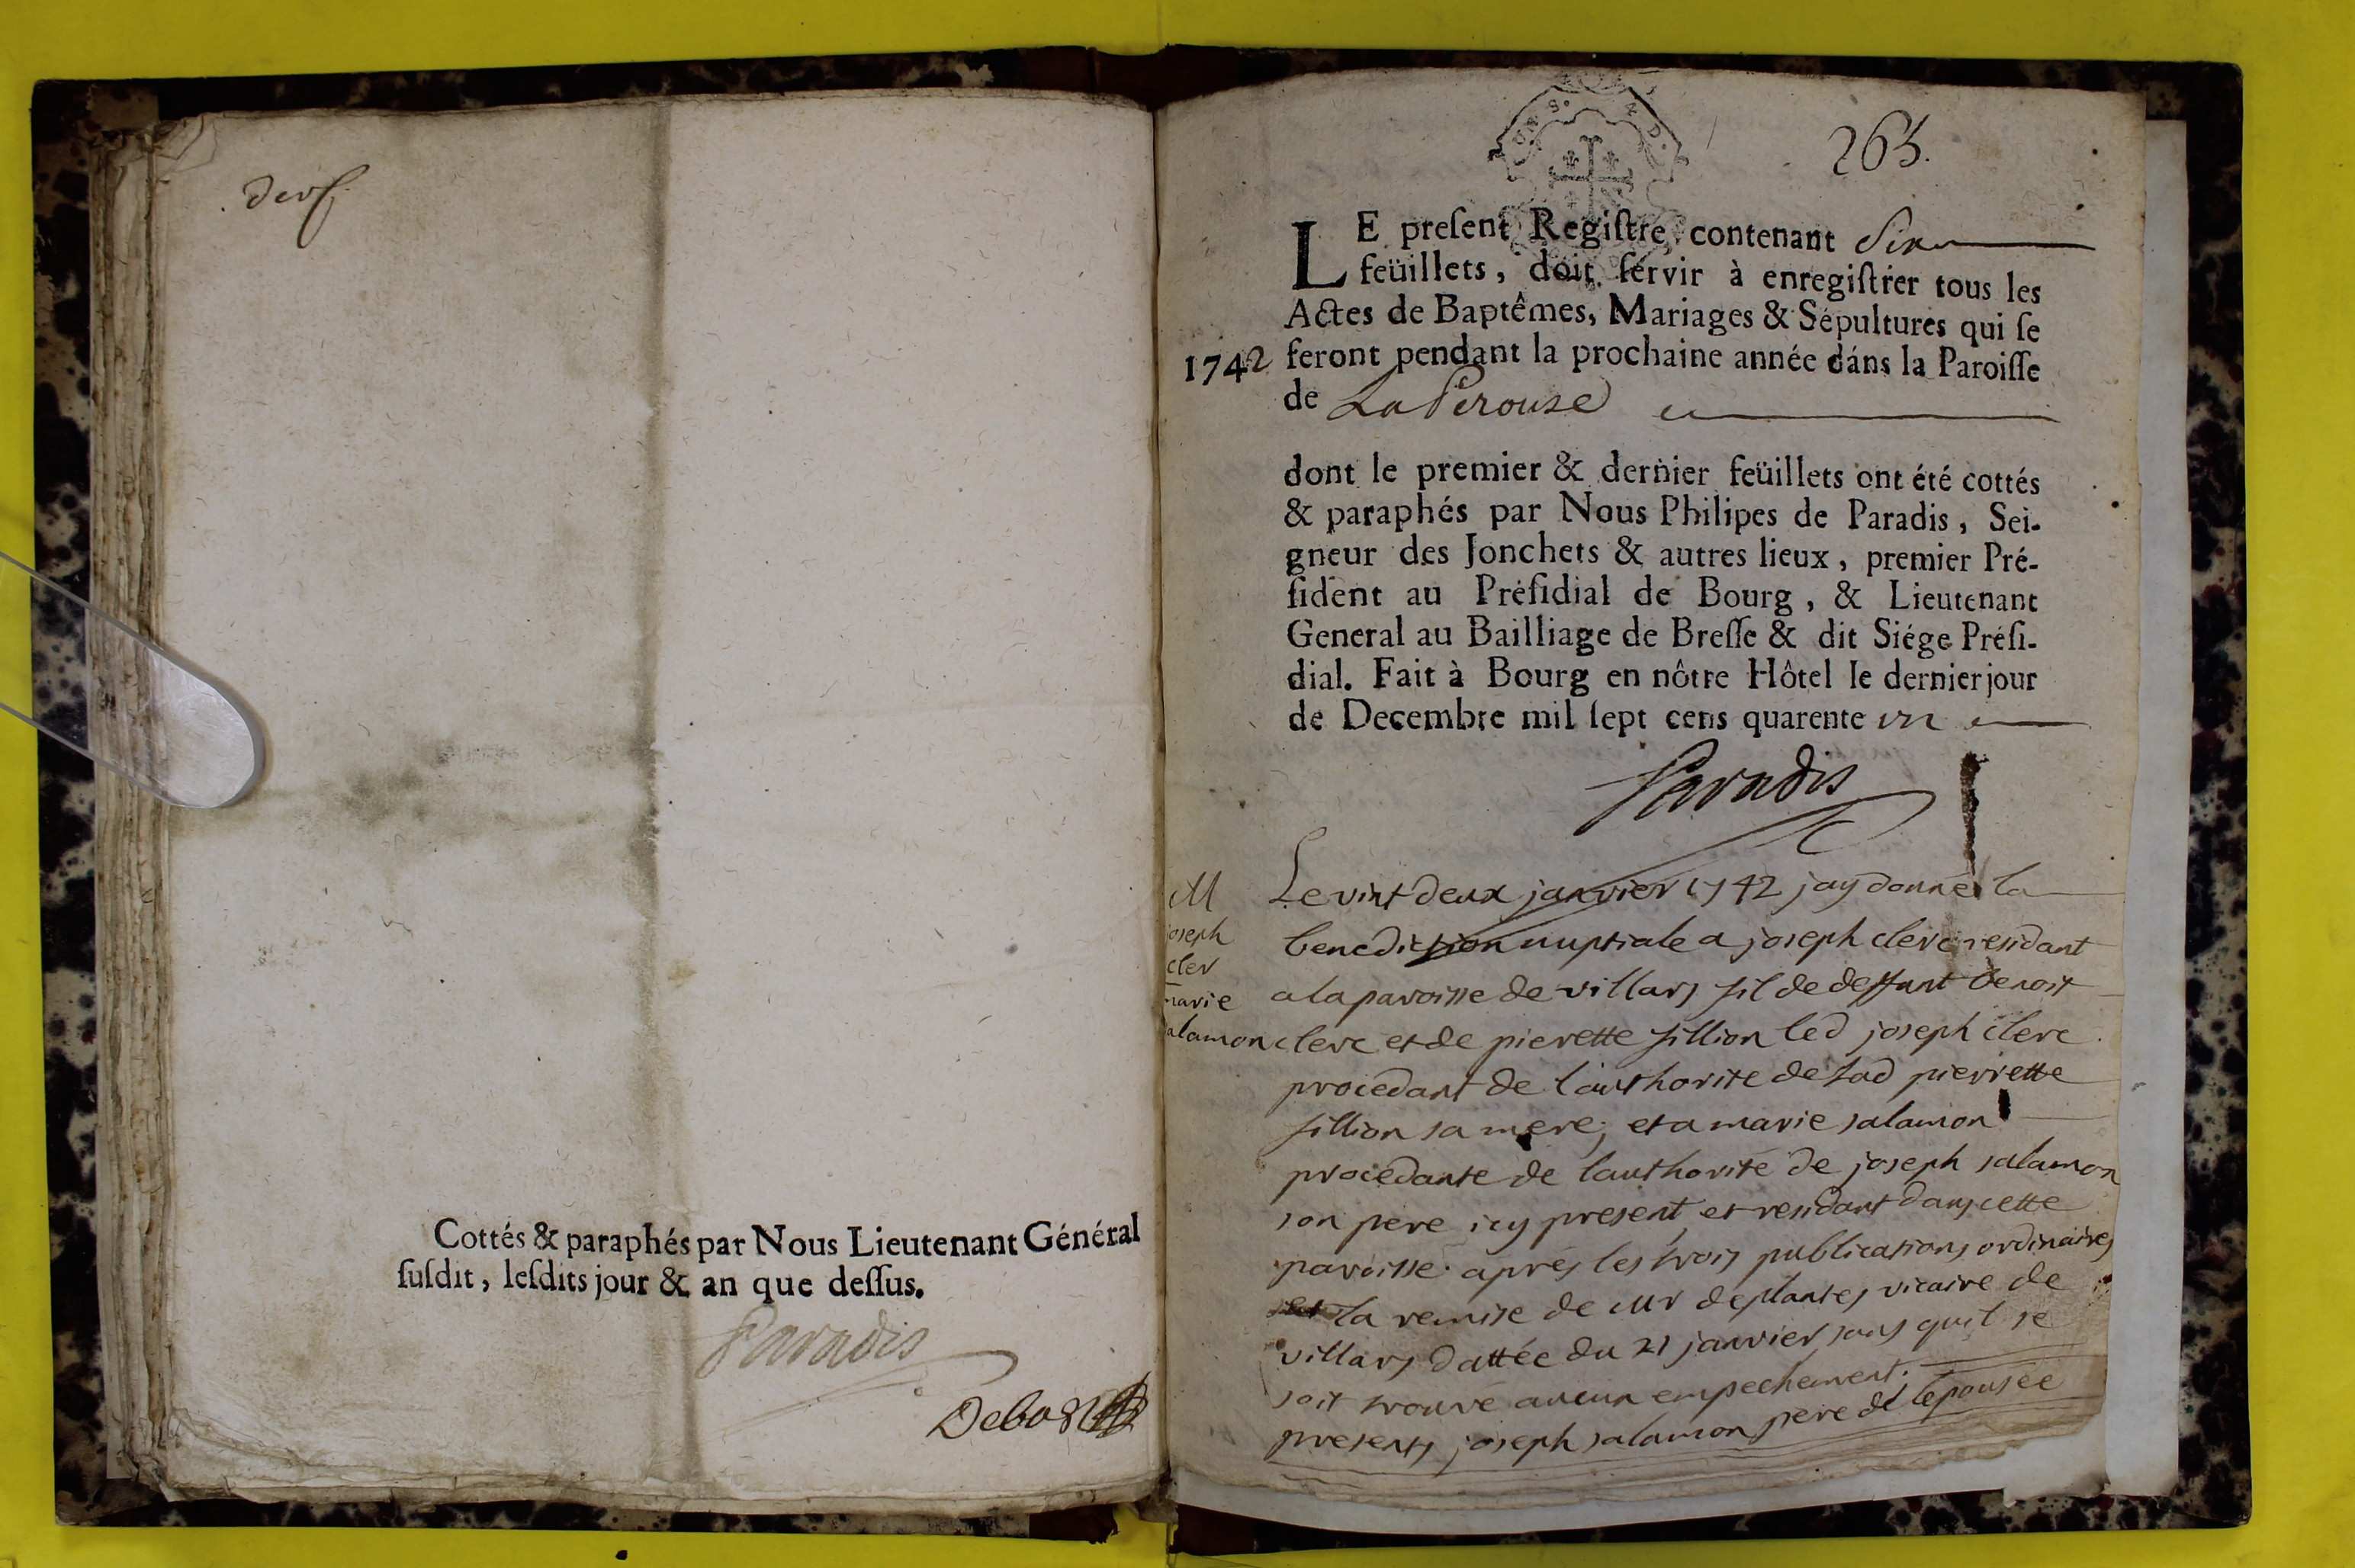 Cottés & paraphés par Nous Lieutenant Général
ſuſdit, leſdits jour & an que deſſus.
Paradis
263.
LE preſent Regiſtre, contenant Six
feüillets, doit ſervir à enregiſtrer tous les
Actes de Baptêmes, Mariages & Sépultures qui ſe
1742 feront pendant la prochaine année dans la Paroiſſe
de La Perouse
dont le premier & dernier feüillets ont été cottés
& paraphés par Nous Philipes de Paradis, Sei-
gneur des Jonchets & autres lieux, premier Pré-
ſident au Préſidial de Bourg, & Lieutenant
General au Bailliage de Breſſe & dit Siége Préſi-
dial. Fait à Bourg en nôtre Hôtel le dernier jour
de Decembre mil ſept cens quarente un
Paradis
M
joseph
cler
marie
salamon
Le vint deux janvier 1742 jay donné la
benediction nuptiale a joseph clerc residant
a la paroisse de villars fil de deffunt benoit
clerc et de pierette fillion led joseph clerc
procedant de l'authorite de lad pierrette
fillion sa mere, et a marie salamon
procedante de lauthorité de joseph salamon
son pere icy present et residant dans cette
paroisse apres les trois publications ordinaires
et la remise de Mr desplantes vicaire de
villars dattée du 21 janvier sans quil se
soit trouvé aucun empechement.
presents joseph salamon pere de lepousée